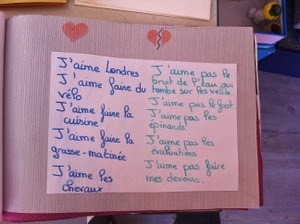 J'aime Londres
J'aime faire du
vélo
J'aime faire la
cuisine
J'aime faire la
grasse-matinée
J'aime les
chevaux
J'aime pas le
bruit de l'eau qui
tombe sur les
J'aime pas le foot
J'aime pas les
épinards.
J'aime pas les
évaluations.
J'aime pas faire
mes devoirs.